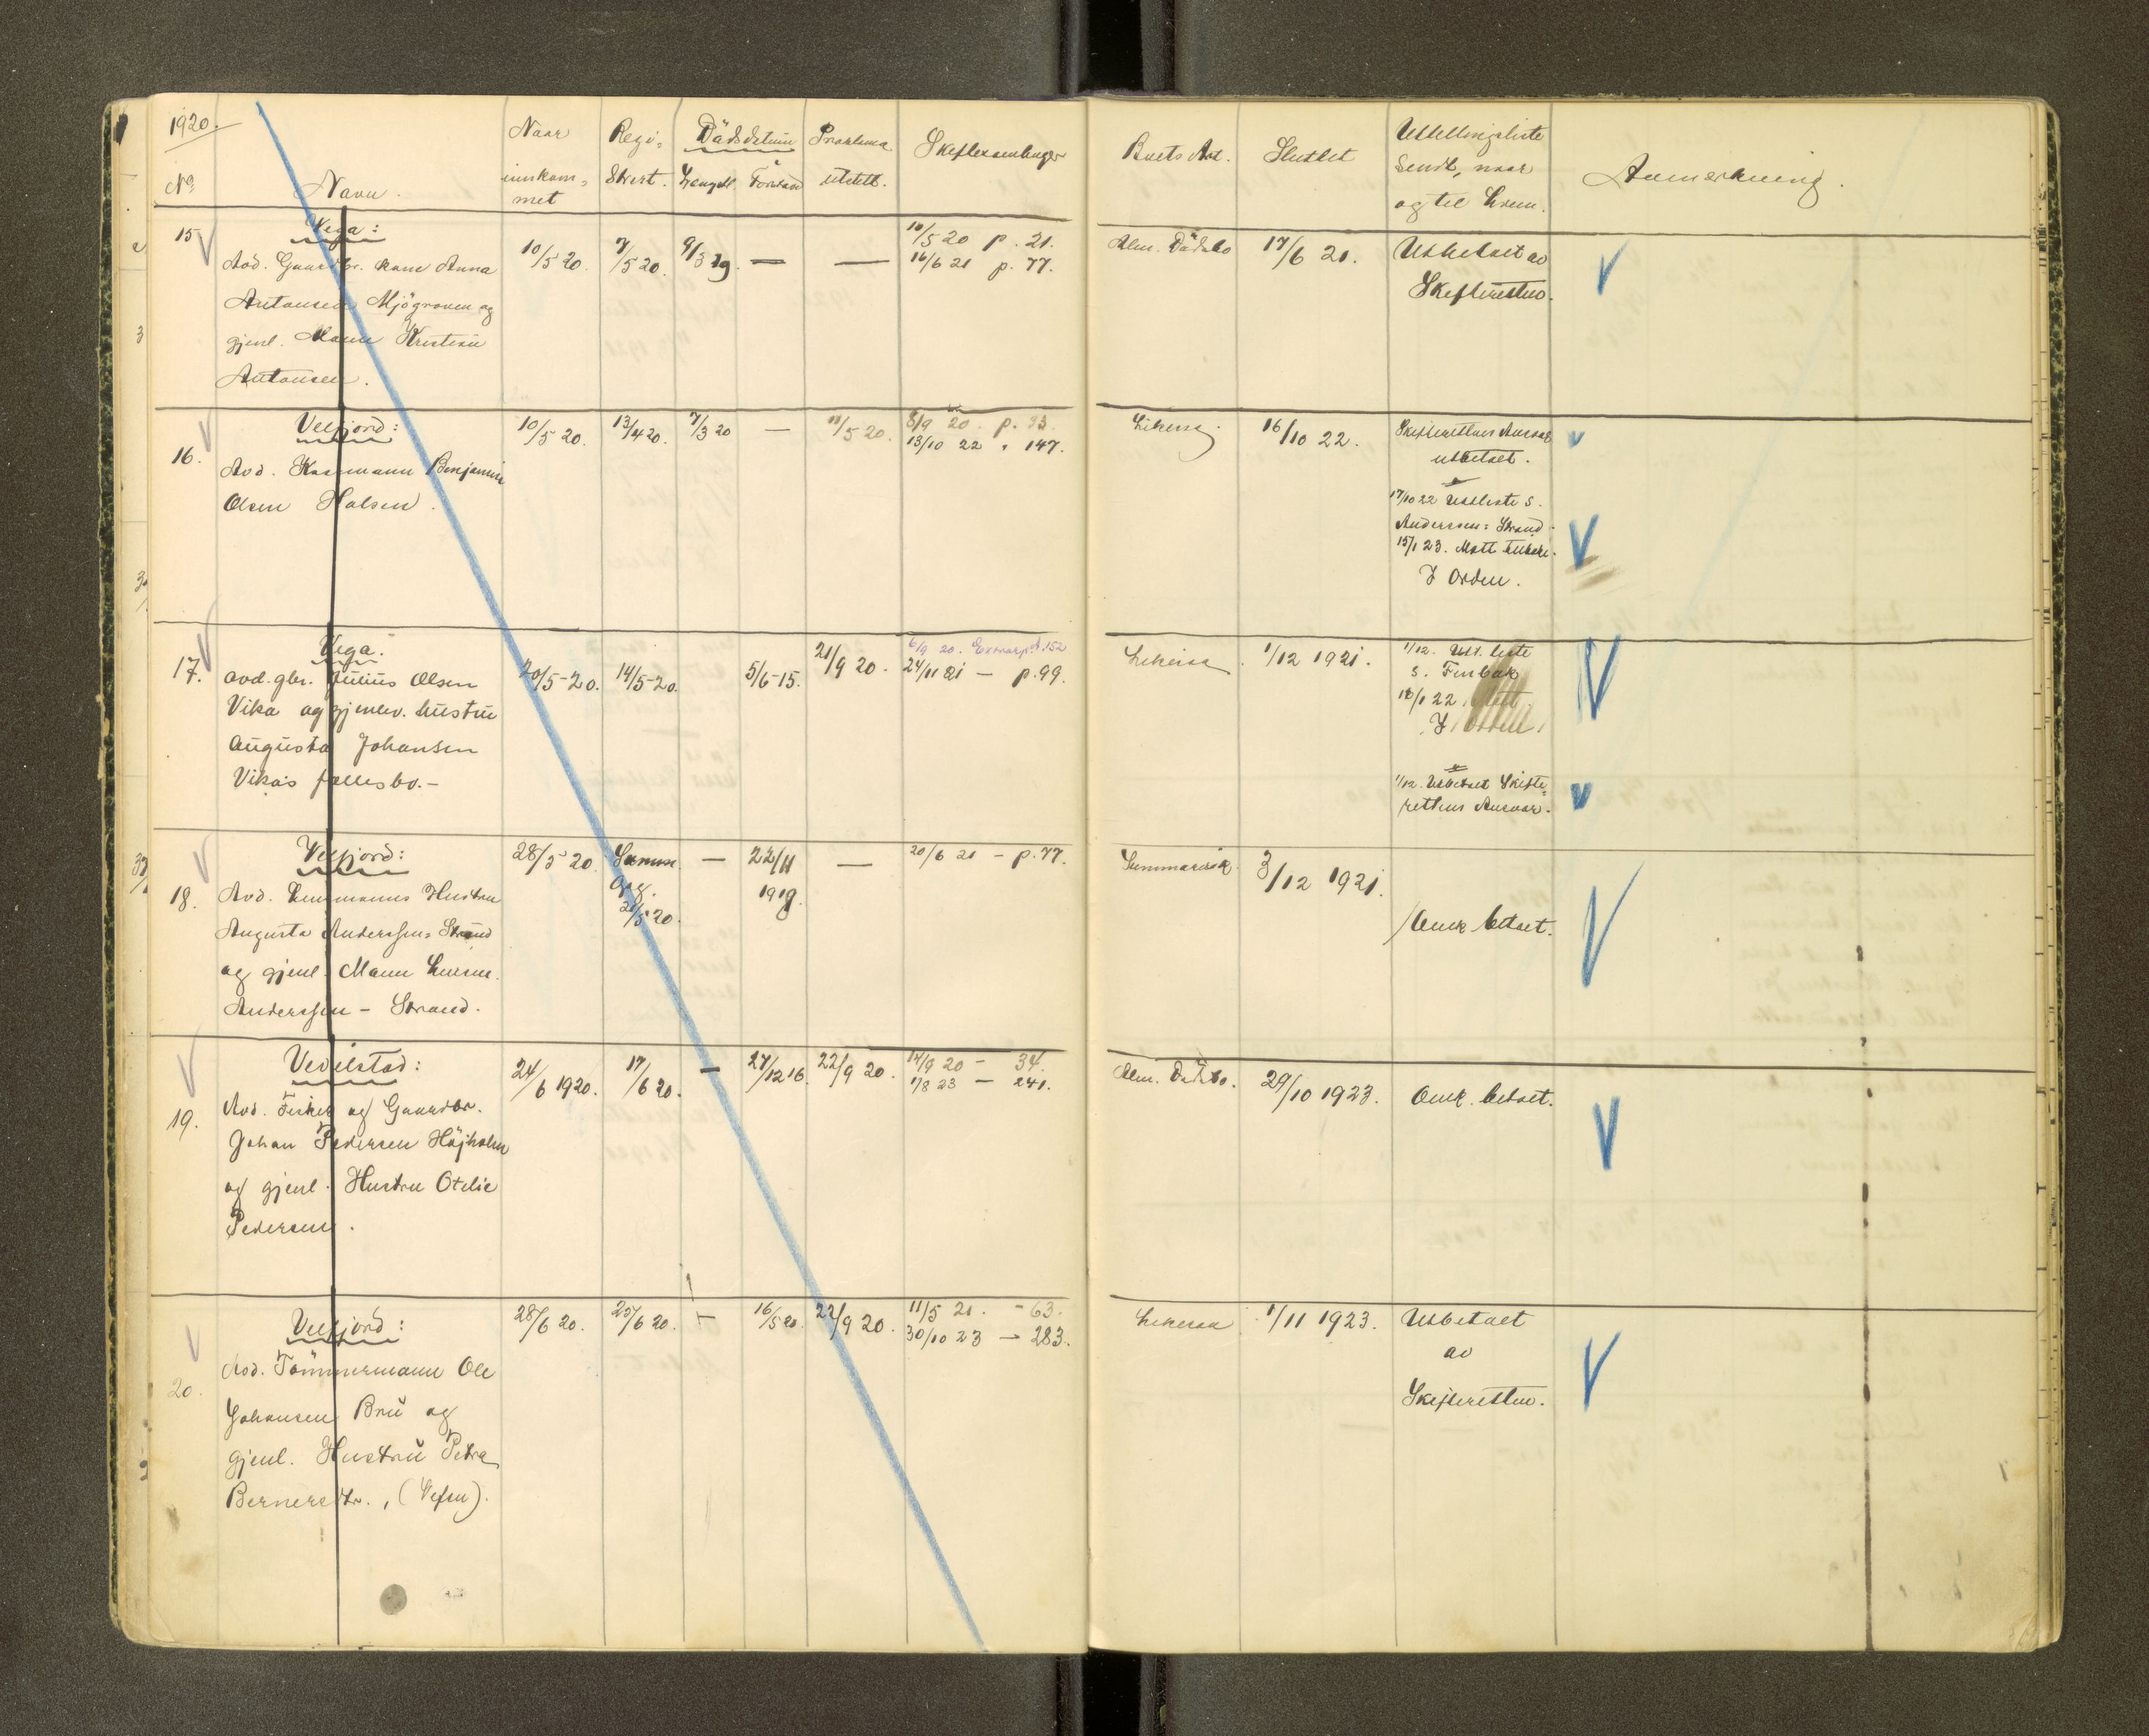 1920.
No Navn. Naar innkom= met Regi= strert. Dödsdatum Længst. Proklama utstedt.
Boets Art. Sluttet Utellingsliste sendt, naar og til hvem. Anmerkning.
15 Vega:
Avd. Gaardbr. kone Anna
Antonsen og
gjenl. Mann Kristian
Antonsen.
10/5 20. 7/5 20. 9/3 19. — —
10/5 20 p. 21.
16/6 21 p. 77.
Alm. Dödsbo 17/6 21. Utbetalt av
Skifteretten.
16. Velfjord:
Avd. Benjamin
Olsen Halsen.
10/5 20. 13/4 20. 7/3 20 — 11/5 20.
8/9 20. p. 33.
13/10 22 " 147.
16/10 22. Skifterettens Ansvar
utbetalt.
17/10 22 Utl.liste s.
Anderssen= Strand.
15/1 23. Mott.
I Orden.
17. Vega.
avd. gbr. Julius Olsen
Vika og gjenlev. hustru
Augusta Johansen
Vika's fællesbo.-
20/5-20. 14/5-20. 5/6-15. 21/9 20.
6/9 20. p. 152
24/11 21 — p. 99.
1/12 1921. 1/12. Utl. liste
s.
18/1 22.
I Orden.
1/12. Utbetalt Skifte=
rettens Ansvar.
18. Velfjord:
Avd. Lensmanns Hustru
Augusta Anderssen= Strand
og gjenl. Mann Lensm.
Anderssen - Strand.
28/5 20. 21/5 20. — 22/11
1919. —
20/6 21 — p. 77.
Summarisk. 3/12 1921.
Omk. betalt.
19. Vevelstad:
Avd. Fisker og Gaardbr.
Johan Pedersen Höjholm
og gjenl. Hustru Otelie
Pedersen.
24/6 1920. 17/6 20. — 27/12 16. 22/9 20.
14/9 20 — 34.
1/8 23 — 241.
Alm. Dödsbo. 29/10 1923. Omk. betalt.
20. Velfjord:
Avd. Tömmermann Ole
Johansen Brü og
gjenl. Hustru Petra
Bernersdtr., (Vefsn).
28/6 20. 25/6 20. — 16/5 20. 22/9 20.
11/5 21. - 63.
30/10 23 — 283.
1/11 1923. Utbetalt
av
Skifteretten.